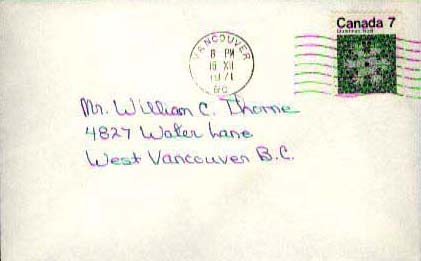 Canada 7
VANCOUVER
8 PM
16 XII
1971
BC
Mr. William C. Thorne
4827 Water Lane
West Vancouver B.C.